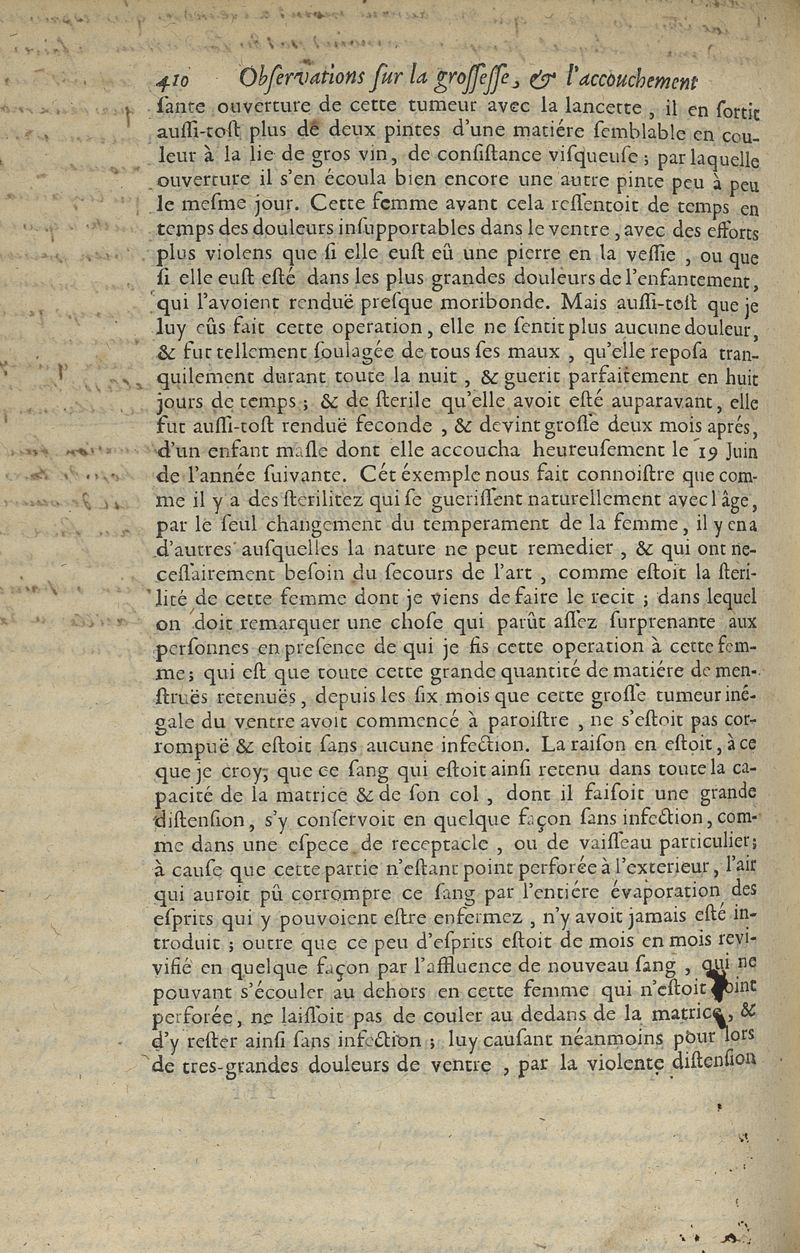 410 Obſervations ſur la groſſeſſe, & l'accouchement
ſante ouverture de cette tumeur avec la lancette, il en ſortit
auſſi-toſt plus de deux pintes d'une matiére ſemblable en cou-
leur à la lie de gros vin, de conſiſtance viſqueuſe; par laquelle
ouverture il s'en écoula bien encore une autre pinte peu à peu
le meſme jour. Cette femme avant cela reſſentoit de temps en
temps des douleurs inſupportables dans le ventre, avec des efforts
plus violens que ſi elle euſt eû une pierre en la veſſie, ou que
ſi elle euſt eſté dans les plus grandes douleurs de l'enfantement,
qui l'avoient renduë preſque moribonde. Mais auſſi-toſt que je
luy eûs fait cette operation, elle ne ſentit plus aucune douleur,
& fut tellement ſoulagée de tous ſes maux, qu'elle repoſa tran-
quilement durant toute la nuit, & guerit parfaitement en huit
jours de temps; & de ſterile qu'elle avoit eſté auparavant, elle
fut auſſi-toſt renduë feconde, & devint groſſe deux mois aprés,
d'un enfant maſle dont elle accoucha heureuſement le 19 Juin
de l'année ſuivante. Cét éxemple nous fait connoiſtre que com-
me il y a des ſterilitez qui ſe gueriſſent naturellement avec l âge,
par le ſeul changement du temperament de la femme, il y en a
d'autres auſquelles la nature ne peut remedier, & qui ont ne-
ceſſairement beſoin du ſecours de l'art, comme eſtoit la ſteri-
lité de cette femme dont je viens de faire le recit; dans lequel
on doit remarquer une choſe qui parût aſſez ſurprenante aux
perſonnes en preſence de qui je fis cette operation à cette fem-
me; qui eſt que toute cette grande quantité de matiére de men-
ſtruës retenuës, depuis les ſix mois que cette groſſe tumeur iné-
gale du ventre avoit commencé à paroiſtre, ne s'eſtoit pas cor-
rompuë & eſtoit ſans aucune infection. La raiſon en eſtoit, à ce
que je croy, que ce ſang qui eſtoit ainſi retenu dans toute la ca-
pacité de la matrice & de ſon col, dont il faiſoit une grande
diſtenſion, s'y conſervoit en quelque façon ſans infection, com-
me dans une eſpece de receptacle, ou de vaiſſeau particulier;
à cauſe que cette partie n'eſtant point perforée à l'exterieur, l'air
qui auroit pû corrompre ce ſang par l'entiére évaporation des
eſprits qui y pouvoient eſtre enfermez, n'y avoit jamais eſté in-
troduit; outre que ce peu d'eſprits eſtoit de mois en mois revi-
vifié en quelque façon par l'affluence de nouveau ſang, qui ne
pouvant s'écouler au dehors en cette femme qui n'eſtoit point
perforée, ne laiſſoit pas de couler au dedans de la matrice, &
d'y reſter ainſi ſans infection; luy cauſant néanmoins pour lors
de tres-grandes douleurs de ventre, par la violente diſtenſion